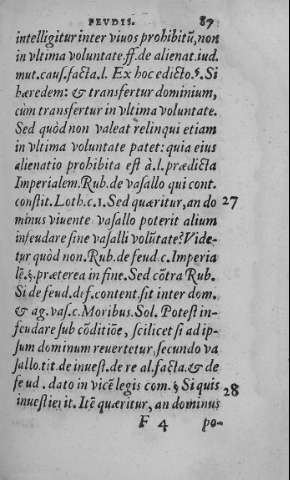 FEVDIS. 87
intelligitur inter viuos prohibitũ, non
in vltima voluntate. ff. de alienat. iud.
mut. cauſ. facta. l. Ex hoc edicto. §. Si
hæredem: & transfertur dominium,
cùm transfertur in vltima voluntate.
Sed quòd non valeat relinqui etiam
in vltima voluntate patet: quia eius
alienatio prohibita est à. l. prædicta
Imperialem. Rub. de vaſallo qui cont.
conſtit. Loth. c. 1. Sed quæritur, an do 27
minus viuente vaſallo poterit alium
infeudare ſine vaſalli volũtate? Vide-
tur quòd non. Rub. de feud. c. Imperia
lẽ. §. præterea in fine. Sed cõtra Rub.
Si de feud. def. content. ſit inter dom.
& ag. vaſ. c. Moribus. Sol. Potest in-
feudare ſub cõditiõe, ſcilicet ſi ad ip-
ſum dominum reuertetur, ſecundo va
ſallo. tit. de inuest. de re al. facta. & de
feud. dato in vicẽ legis com. § Si quis 28
inuestierit. Itẽ quæritur, an dominus
F 4 po-